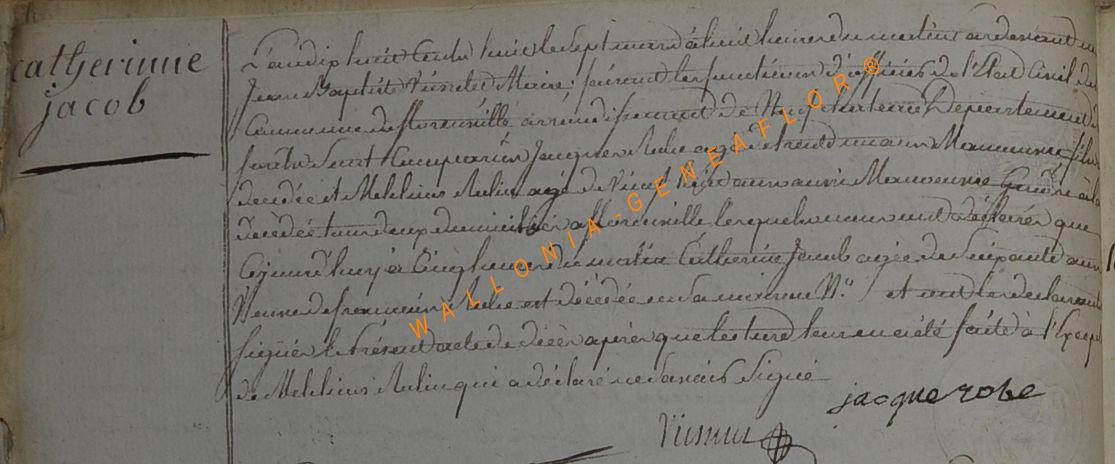 catherinne
jacob
L'an dix huit Cents huit le Sept mars à huit heures du matin ardevant nous
Jean Baptiste Maire faisant les fonctions d'officier de l'Etat Civil de
Commune de florenville arrondissement de Neufchateau Departement de
forêts Sont Comparus Jacques Robe agé de trente un ans Manœuvre fils
decedée et Melchior agé de Vingt ans aussi Manœuvre Gendre à la
décédée tous deux domiciliés a florenville lesquels nous ont déclaré que
Cejourd'huy à Cinq heures du matin Catherine Jacob agée de Soixante ans
Veuve de francois Robe est décédée en Sa maison N.° et ont les declarants
Signés le Présent acte de décès après que lecture leur en a été faite à l'Excep
de Melchior qui a déclaré ne Savoir Signé
jacque robe
WALLONIA-GENEAFLOR®